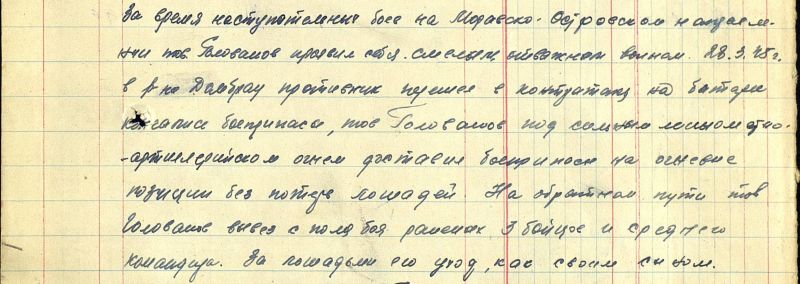 За время наступательных боев на Моравско-Островском направле-
нии тов. Голованов проявил себя смелым, отважным воином. 28.3.45 г.
в р-не Домбрау противник перешел в контратаку на батарее
кончались боеприпасы, тов Голованов под сильным минометно-
-артиллерийском огнем доставил боеприпасы на огневые
позиции без потерь лошадей. На обратном пути тов
Голованов вывез с поля боя раненых 3 бойцов и среднего
командира. За лошадьми его уход, как своим сыном.